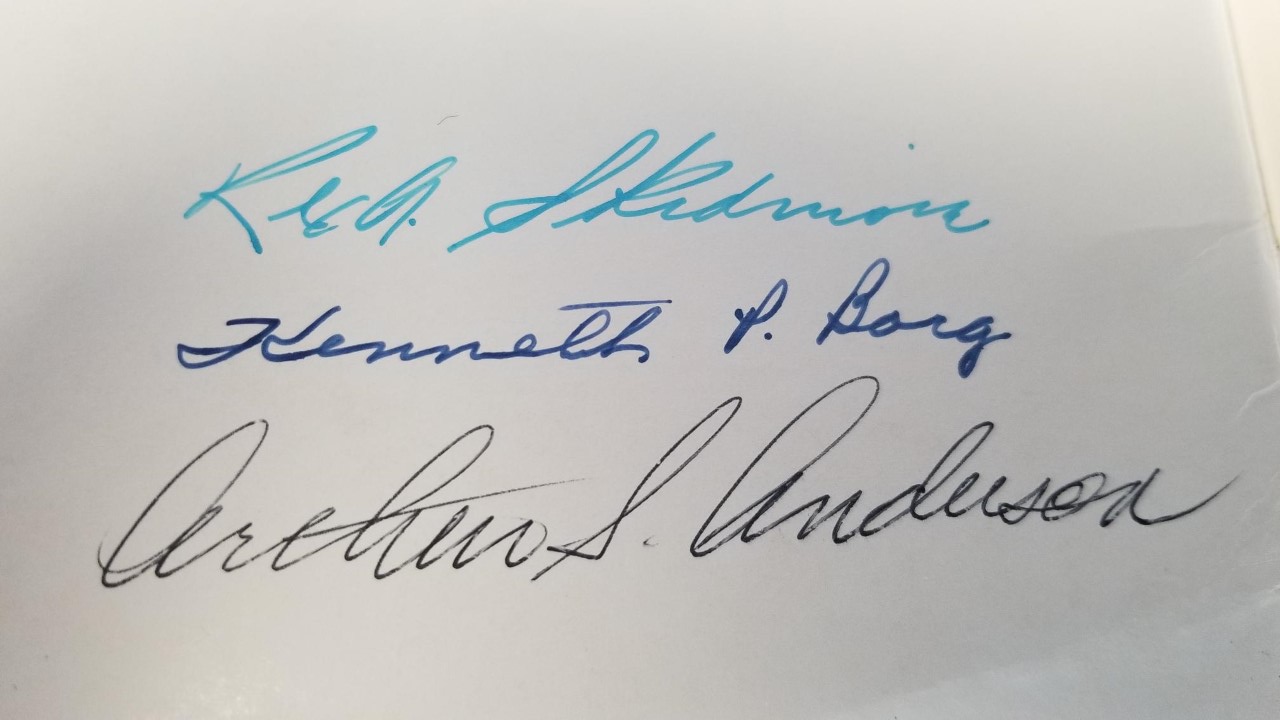 Rex A. Skidmore
Kenneth P. Borg
Arthur S. Anderson